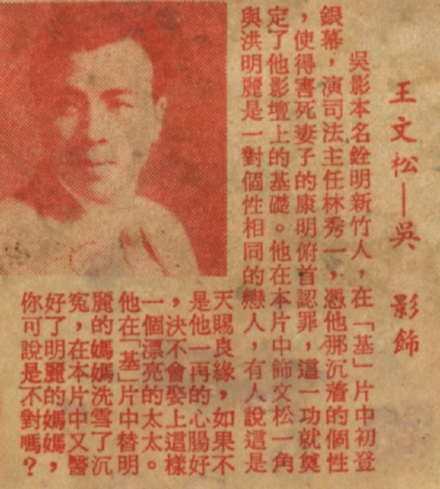 王文松—吳　影飾
吳影本名銓明新竹人，在「基」片中初登
銀幕，演司法主任林秀一，憑他那沉着的個性
，使得害死妻子的康明俯首認罪，這一功就奠
定了他影壇上的基礎。他在本片中飾文松一角
與洪明麗是一對個性相同的戀人，有人說這是
天賜良緣，如果不
是他一再的心腸好
，決不會娶上這樣
一個漂亮的太太。
他在「基」片中替明
麗的媽媽洗雪了沉
寃，在本片中又醫
好了明麗的媽媽，
你可說是不對嗎？